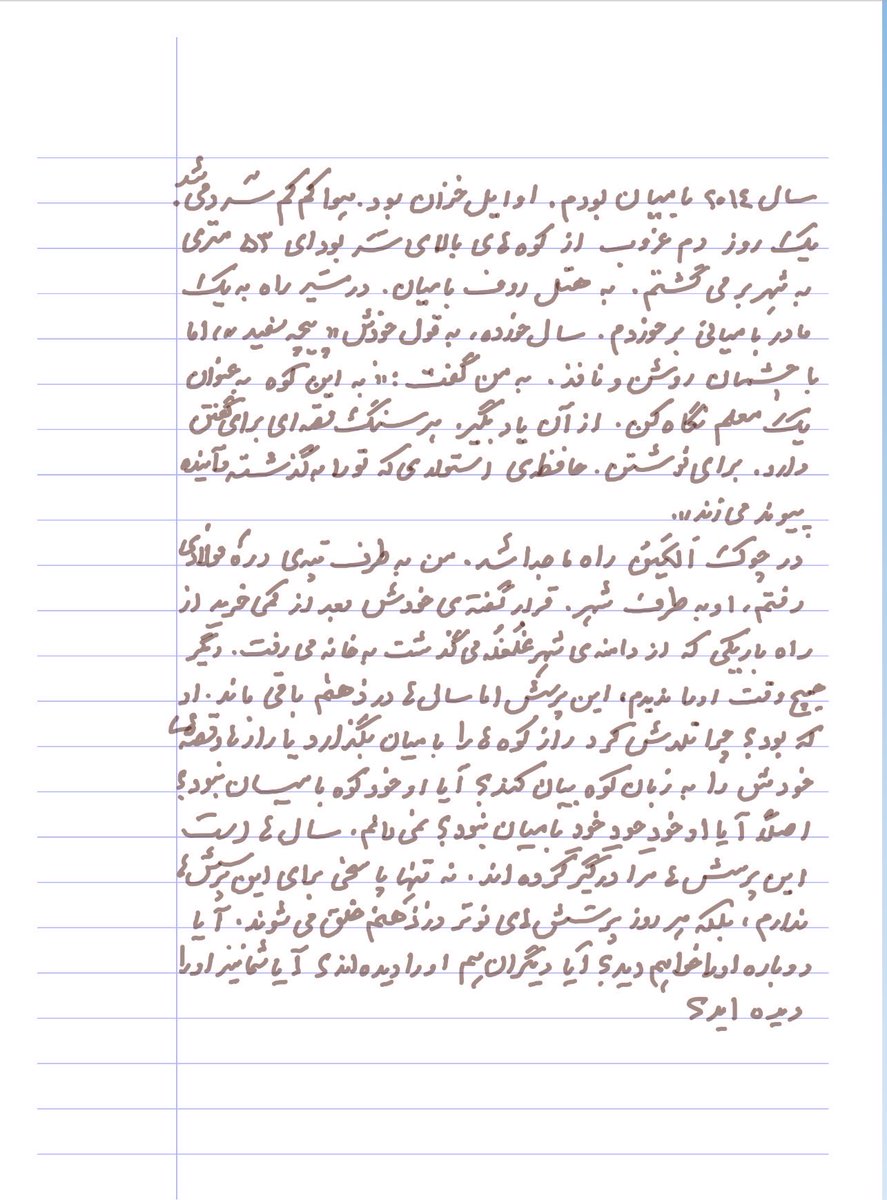 سال ۲۰۱۴ بامیان بودم. اوایل خزان بود. هوا کم کم سرد می شد.
یک روز دم غروب از کوه های بالای بودای ۵۳ متری
به شهر بر می گشتم. به هتل روف بامیان. در مسیر راه به یک
مادر بامیانی برخوردم. سال خورده، به قول خودش «پیچه سفید»، اما
با چشمان روشن و نافذ. به من گفت: «به این کوه به عنوان
یک معلم نگاه کن. از آن یاد بگیر. هر سنگ قصه ای برای گفتن
دارد. برای نوشتن. حافظه ی استواری که تو را به گذشته و آینده
پیوند می زند».
در چوک الکین راه ما جدا شد. من به طرف تپه ی دره فولادی
رفتم، او به طرف شهر. قرار گفته ی خودش بعد از کمی خرید از
راه باریکی که از دامنه ی شهر غلغله می گذشت به خانه می رفت. دیگر
هیچ وقت او را ندیدم، این پرسش اما سال ها در ذهنم باقی ماند. او
که بود؟ چرا تلاش کرد راز کوه ها را با میان بگذارد یا رازها و قصه های
خودش را به زبان کوه بیان کند؟ آیا او خود کوه بامیان نبود؟
اصلاً آیا او خودِ خودِ خود بامیان نبود؟ نمی دانم. سال ها است
این پرسش ها مرا درگیر کرده اند. نه تنها پاسخی برای این پرسش ها
ندارم، بلکه هر روز پرسش های نوتر در ذهنم خلق می شوند. آیا
دوباره او را خواهیم دید؟ آیا دیگران هم او را دیده اند؟ آیا شما نیز او را
دیده اید؟